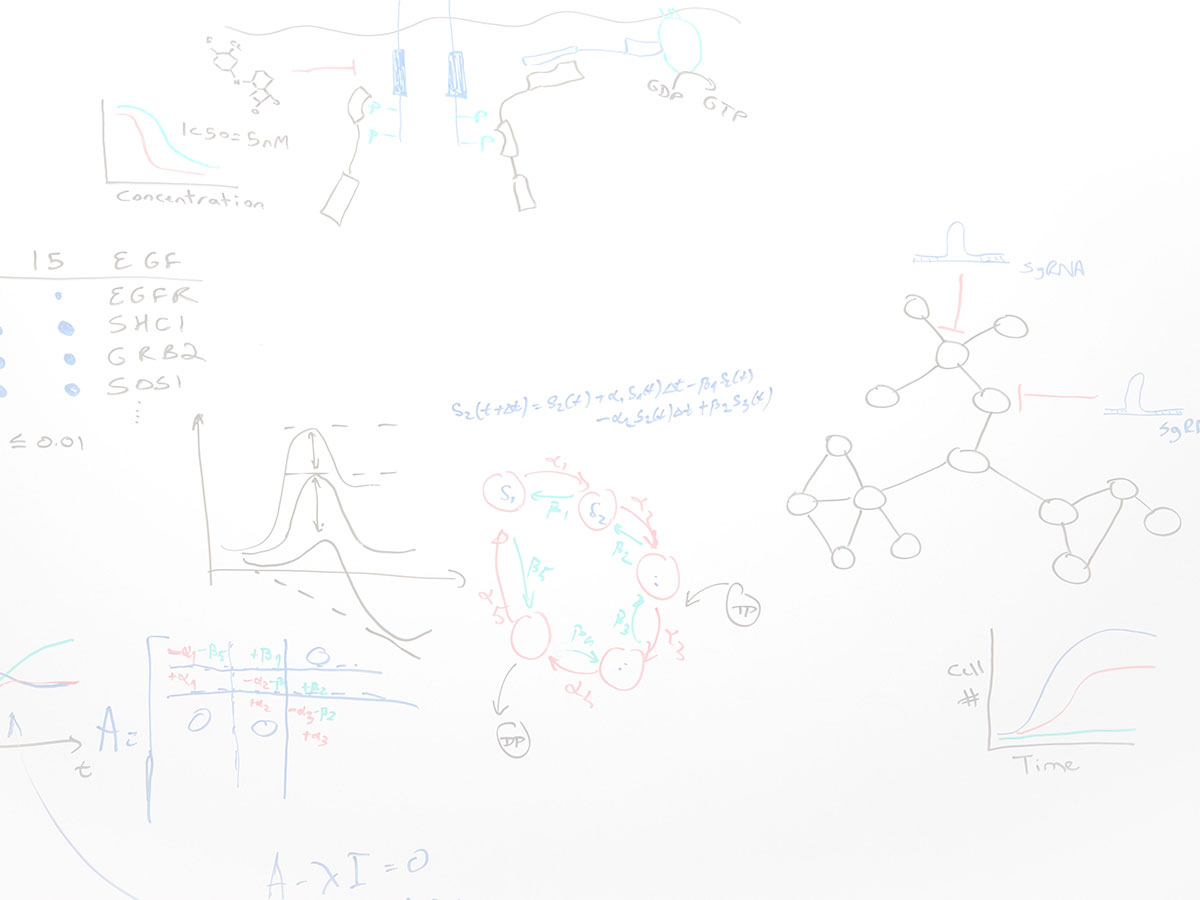 F
Cl
GDP
GTP
P
P
P
P
IC50=5nM
Concentration
15 EGF
EGFR
SHC1
GRB2
SOS1
≤ 0.01
sgRNA
sgR
S₂(t+Δt)=S₂(t)+α₁S₁(t)Δt-β₁S₂(t)
-α₂S₂(t)Δt+β₂S₃(t)
S₁
α₁
β₁
S₂
β₂
β₅
α₅
β₃
β₄
TP
DP
-α₁-β₅ +β₁ 0
+α₁ -α₂-β +β₂
0 +α₂ -α₃-β₂
0 +α₃
A=
t
Cell
#
Time
A-λI=0